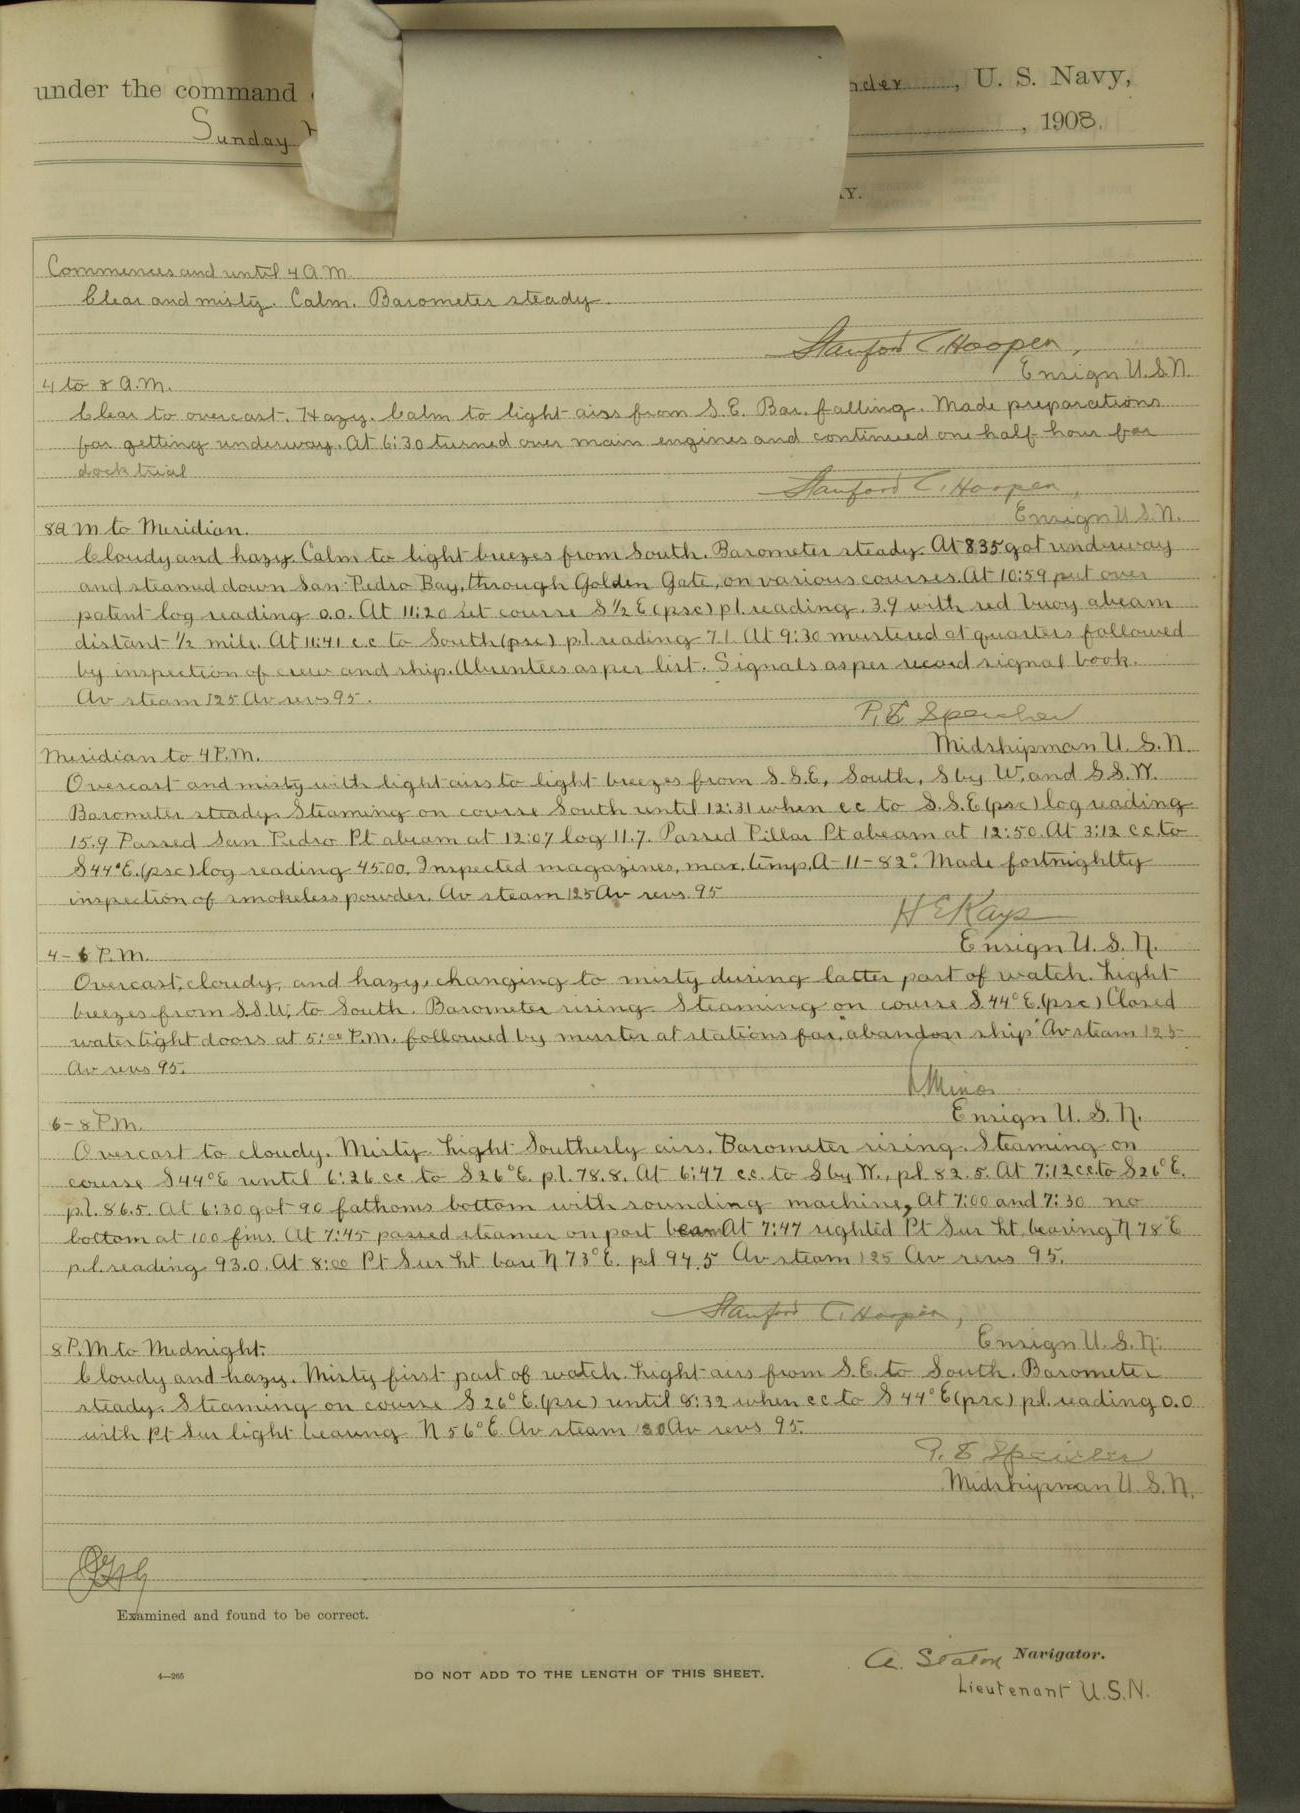 under the command
nder, U. S. Navy,
Sunday
, 1908.
AY.
Commences and until 4 A.M.
Clear and misty. Calm. Barometer steady.
Stanford C. Hooper,
Ensign U.S.N.
4 to 8 A.M.
Clear to overcast. Hazy. Calm to light airs from S.E. Bar. falling. Made preparations
for getting underway. At 6:30 turned over main engines and continued one half hour for
dock trial
Stanford C. Hooper,
Ensign U.S.N.
8 A M to Meridian.
Cloudy and hazy. Calm to light breezes from South. Barometer steady. At 8 35 got underway
and steamed down San Pedro Bay, through Golden Gate, on various courses. At 10:59 put over
patent log reading 0.0. At 11:20 set course S ½ E (psc) p.l. reading. 3.9 with red buoy abeam
distant ½ mile. At 11:41 c.c to South (psc) p.l. reading 7.1. At 9:30 mustered at quarters followed
by inspection of crew and ship. Absentees as per list. Signals as per record signal book.
Av steam 125 Av revs 95.
P. E. Speicher
Midshipman U. S. N.
Meridian to 4 P.M.
Overcast and misty with light airs to light breezes from S.S.E, South, S by W. and S.S.W.
Barometer steady. Steaming on course South until 12:31 when cc to S.S.E (psc) log reading
15.9 Passed San Pedro Pt abeam at 12:07 log 11.7. Passed Pillar Pt abeam at 12:50. At 3:12 c.c. to
S 44° E. (psc) log reading 45.00. Inspected magazines, max. temp. A-11-82°. Made fortnightly
inspection of smokeless powder. Av steam 125 Av revs. 95
H E Kays
Ensign U. S. N.
4 - 6 P.M.
Overcast, cloudy, and hazy, changing to misty during latter part of watch. Light
breezes from S.S.W. to South. Barometer rising. Steaming on course S. 44° E. (psc) Closed
water tight doors at 5:00 P.M. followed by muster at stations for "abandon ship" Av steam 125
Av revs 95.
Ensign U. S. N.
6 - 8 P.M.
Overcast to cloudy. Misty. Light Southerly airs. Barometer rising. Steaming on
course S 44° E until 6:26 cc to S 26° E. p.l. 78.8. At 6:47 c.c. to S by W., pl 82.5. At 7:12 cc to S 26° E.
p.l. 86.5. At 6:30 got 90 fathoms bottom with sounding machine, At 7:00 and 7:30 no
bottom at 100 fms. At 7:45 passed steamer on port beam At 7:47 sighted Pt Sur Lt. bearing N 78° E
p.l. reading 93.0. At 8:00 Pt Sur Lt bore N 73° E. pl 94.5 Av steam 125 Av revs 95.
Stanford C. Hooper,
Ensign U. S. N.
8 P.M to Midnight.
Cloudy and hazy. Misty first part of watch. Light airs from S.E. to South. Barometer
steady. Steaming on course S 26° E. (psc) until 8:32 when cc to S 44° E (psc) pl. reading 0.0
with Pt Sur light bearing N 56° E. Av steam 130 Av revs 95.
P. E. Speicher
Midshipman U. S. N.
Examined and found to be correct.
A. Staton Navigator.
4—265
DO NOT ADD TO THE LENGTH OF THIS SHEET.
Lieutenant U.S.N.